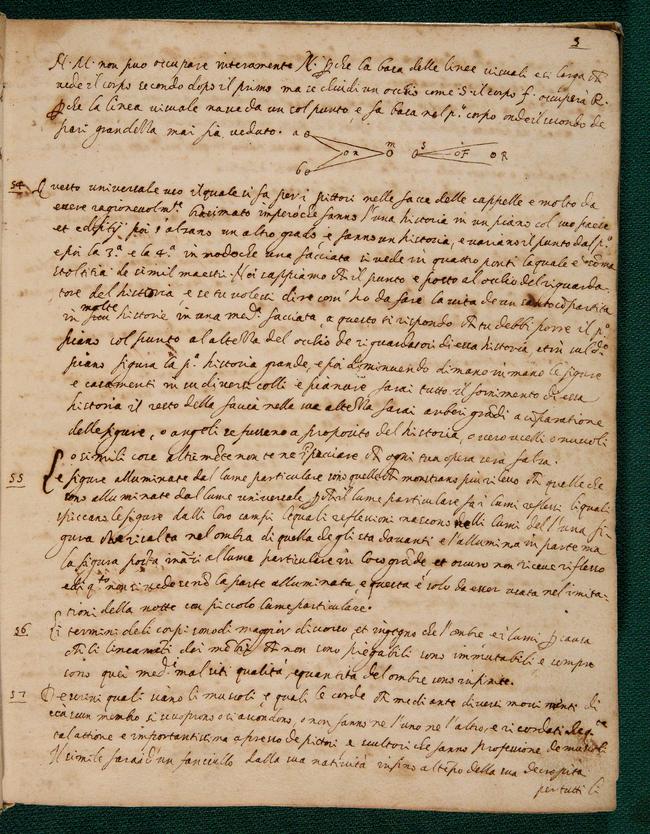 3
N. M. non può occupare interamente N. perche la basa delle linee visuali e si larga che
vede il corpo secondo dopo il primo ma se chiudi un occhio come S il corpo f. occuperà R.
perche la linea visuale nasce da un sol punto, e fa basa nel p.º corpo onde il secondo de
pari grandezza mai fia veduto. a
b n m S F R
54 Questo universale uso il quale si fa per i pittori nelle facce delle cappelle e molto da
essere ragionevolm.te biasimato imperoche fanno l'una historia in un piano col suo paese
et edifitij poi s'alzano un altro grado e fanno un historia, e variano il punto dal p.º
e poi la 3.ª e la 4.ª in modoche una facciata si vede in quattro ponti la quale e somma
stoltitia de simil maestri. Noi sappiamo che il punto e posto al occhio del riguarda-
tore del historia, e se tu volessi dire com' ho da fare la vita de un santo compartita
molte
in historie in una med.ª facciata, a questo ti rispondo che tu debbi porre il p.º
piano col punto al altezza del occhio de riguardatori di essa historia, et in sul d.º
piano figura la p.ª historia grande, e poi diminuendo di mano in mano le figure
e casamenti in su diversi colli e pianure farai tutto il fornimento di essa
historia il resto della faccia nella sua altezza farai arbori grandi a comparatione
delle figure, o angeli se fussero a proposito del historia, o vero ucelli o nuvoli
o simili cose altrimente non te ne impacciare che ogni tua opera sera falsa.
55 Le figure alluminate dal lume particulare sono quelle che monstrano piu rilevo che quelle che
sono alluminate dal lume universale, perche il lume particulare fa i lumi reflessi li quali
spiccano le figure dalli loro campi le quali reflessioni nascono nelli lumi del l'una fi-
gura che risalta nel ombra di quella che gli sta davanti e l'allumina in parte ma
la figura posta inanzi al lume particulare in loco grande et oscuro non riceve riflesso
e di q.ta non si vede senò la parte alluminata, e questa è solo da esser usata nel imita-
tioni della notte con piccolo lume particulare.
56 Li termini deli corpi sono di maggior discorso et ingegno che l'ombre e i lumi per causa
che li lineamenti dei membri che non sono piegabili sono immutabili e sempre
sono quei med.mi mal siti qualità, e quantità del ombre sono infinite.
57 Descrivi quali siano li muscoli e quali le corde che mediante diversi movimenti di
ciascun membro si scuoprono o si ascondono, o non fanno ne l'uno ne l'altro, e ti ricordati che q.ta
tal attione e importantissima apresso de pittori e scultori che fanno professione de muscoli
Il simile farai d'un fanciullo dalla sua natività insino al tempo della sua decrepita
per tutti li